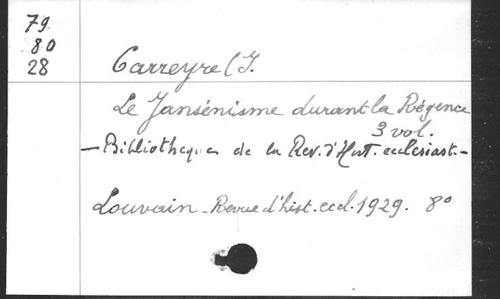 79
80
28
Carreyre (J.
Le Jansénisme durant la Régence
3 vol.
— Bibliotheque de la Rev. d'Hist. ecclesiast. —
Louvain - Revue d'hist. eccl. 1929. 8°